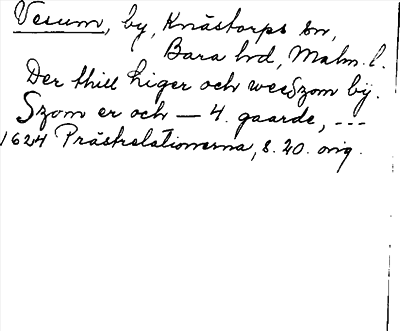 Vesum, by, Knästorps sn,
Bara hd, Malm. l.
Der thill liger och weeszom by.
Szom er och — 4. gaarde, ---
1624 Prästrelationerna, s. 20. orig.